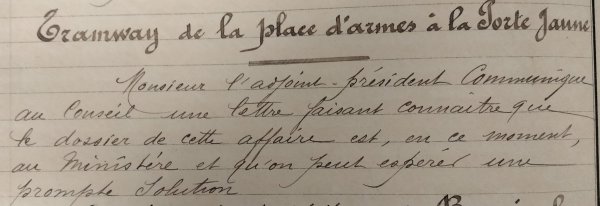 Tramway de la place d'armes à la Porte Jaune
Monsieur l'adjoint-président Communique
au Conseil une lettre faisant connaitre que
le dossier de cette affaire est, en ce moment,
au Ministère et qu'on peut espérer une
prompte Solution